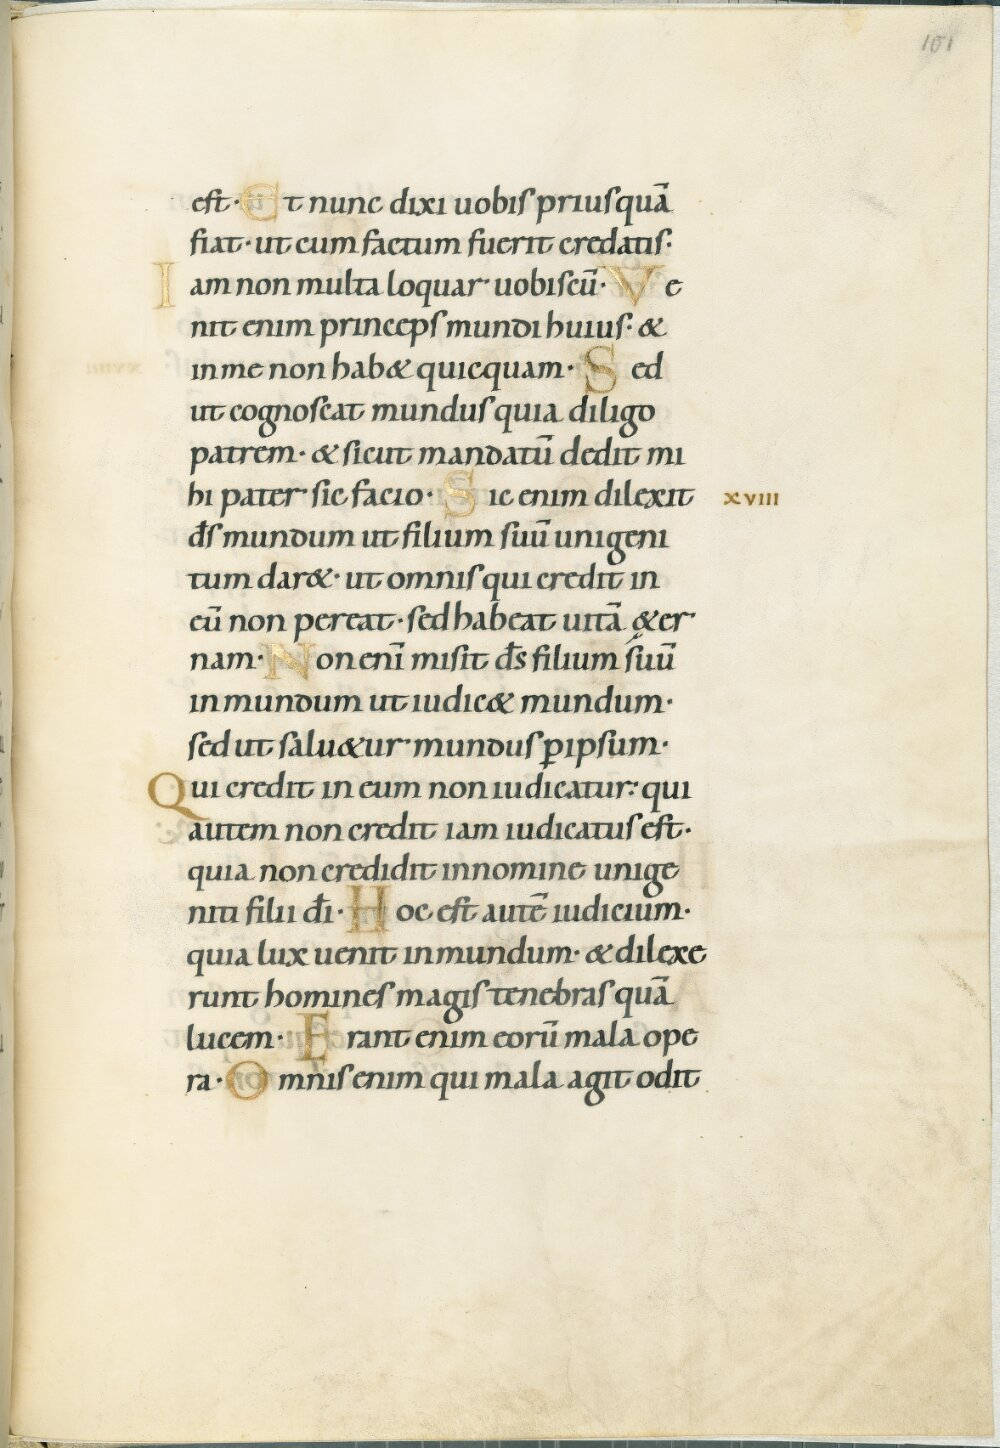 101
est· Et nunc dixi uobis priusquā
fiat· ut cum factum fuerit credatis·
Iam non multa loquar uobiscū· Ve
nit enim princeps mundi huius· &
in me non hab& quicquam· Sed
ut cognoscat mundus quia diligo
patrem· & sicut mandatū dedit mi
hi pater sic facio· Sic enim dilexit xviii
d̄s mundum ut filium suū unigeni
tum dar&· ut omnis qui credit in
eū non pereat· sed habeat uitā &er
nam· Non enī misit d̄s filium suū
in mundum ut iudic& mundum·
sed ut salu&ur mundus ꝑ ipsum·
Qui credit in eum non iudicatur· qui
autem non credit iam iudicatus est·
quia non credidit in nomine unige
niti filii d̄i· Hoc est autē iudicium·
quia lux uenit in mundum· & dilexe
runt homines magis tenebras quā
lucem· Erant enim eorū mala ope
ra· Omnis enim qui mala agit odit